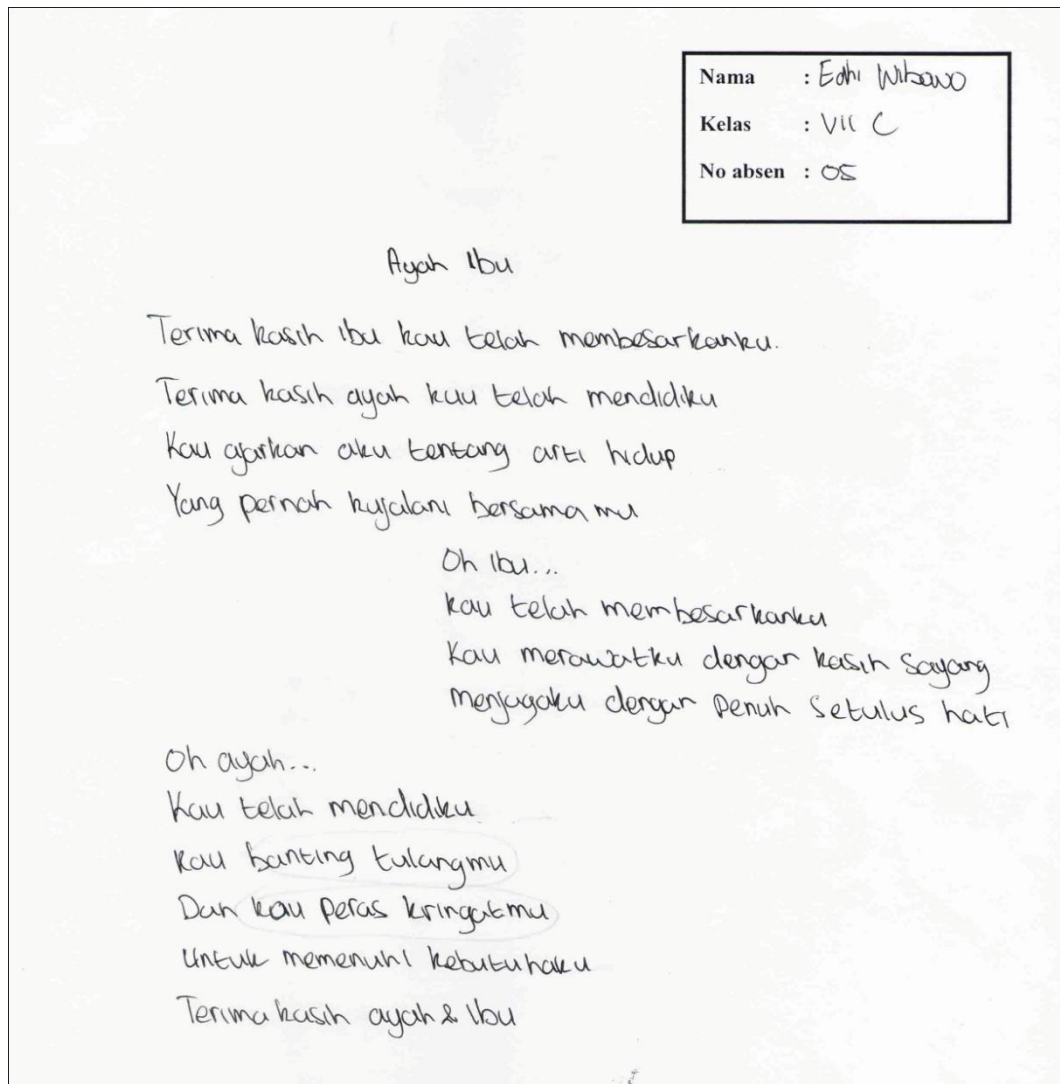 Nama : Edhi Wibowo
Kelas : VII C
No absen : 05
Ayah Ibu
Terima kasih ibu kau telah membesarkanku.
Terima kasih ayah kau telah mendidiku
Kau ajarkan aku tentang arti hidup
Yang pernah kujalani bersama mu
Oh Ibu...
kau telah membesarkanku
Kau merawatku dengan kasih sayang
menjagaku dengan penuh setulus hati
Oh ayah...
Kau telah mendidiku
kau banting tulangmu
Dan kau peras kringatmu
Untuk memenuhi kebutuhaku
Terima kasih ayah & Ibu